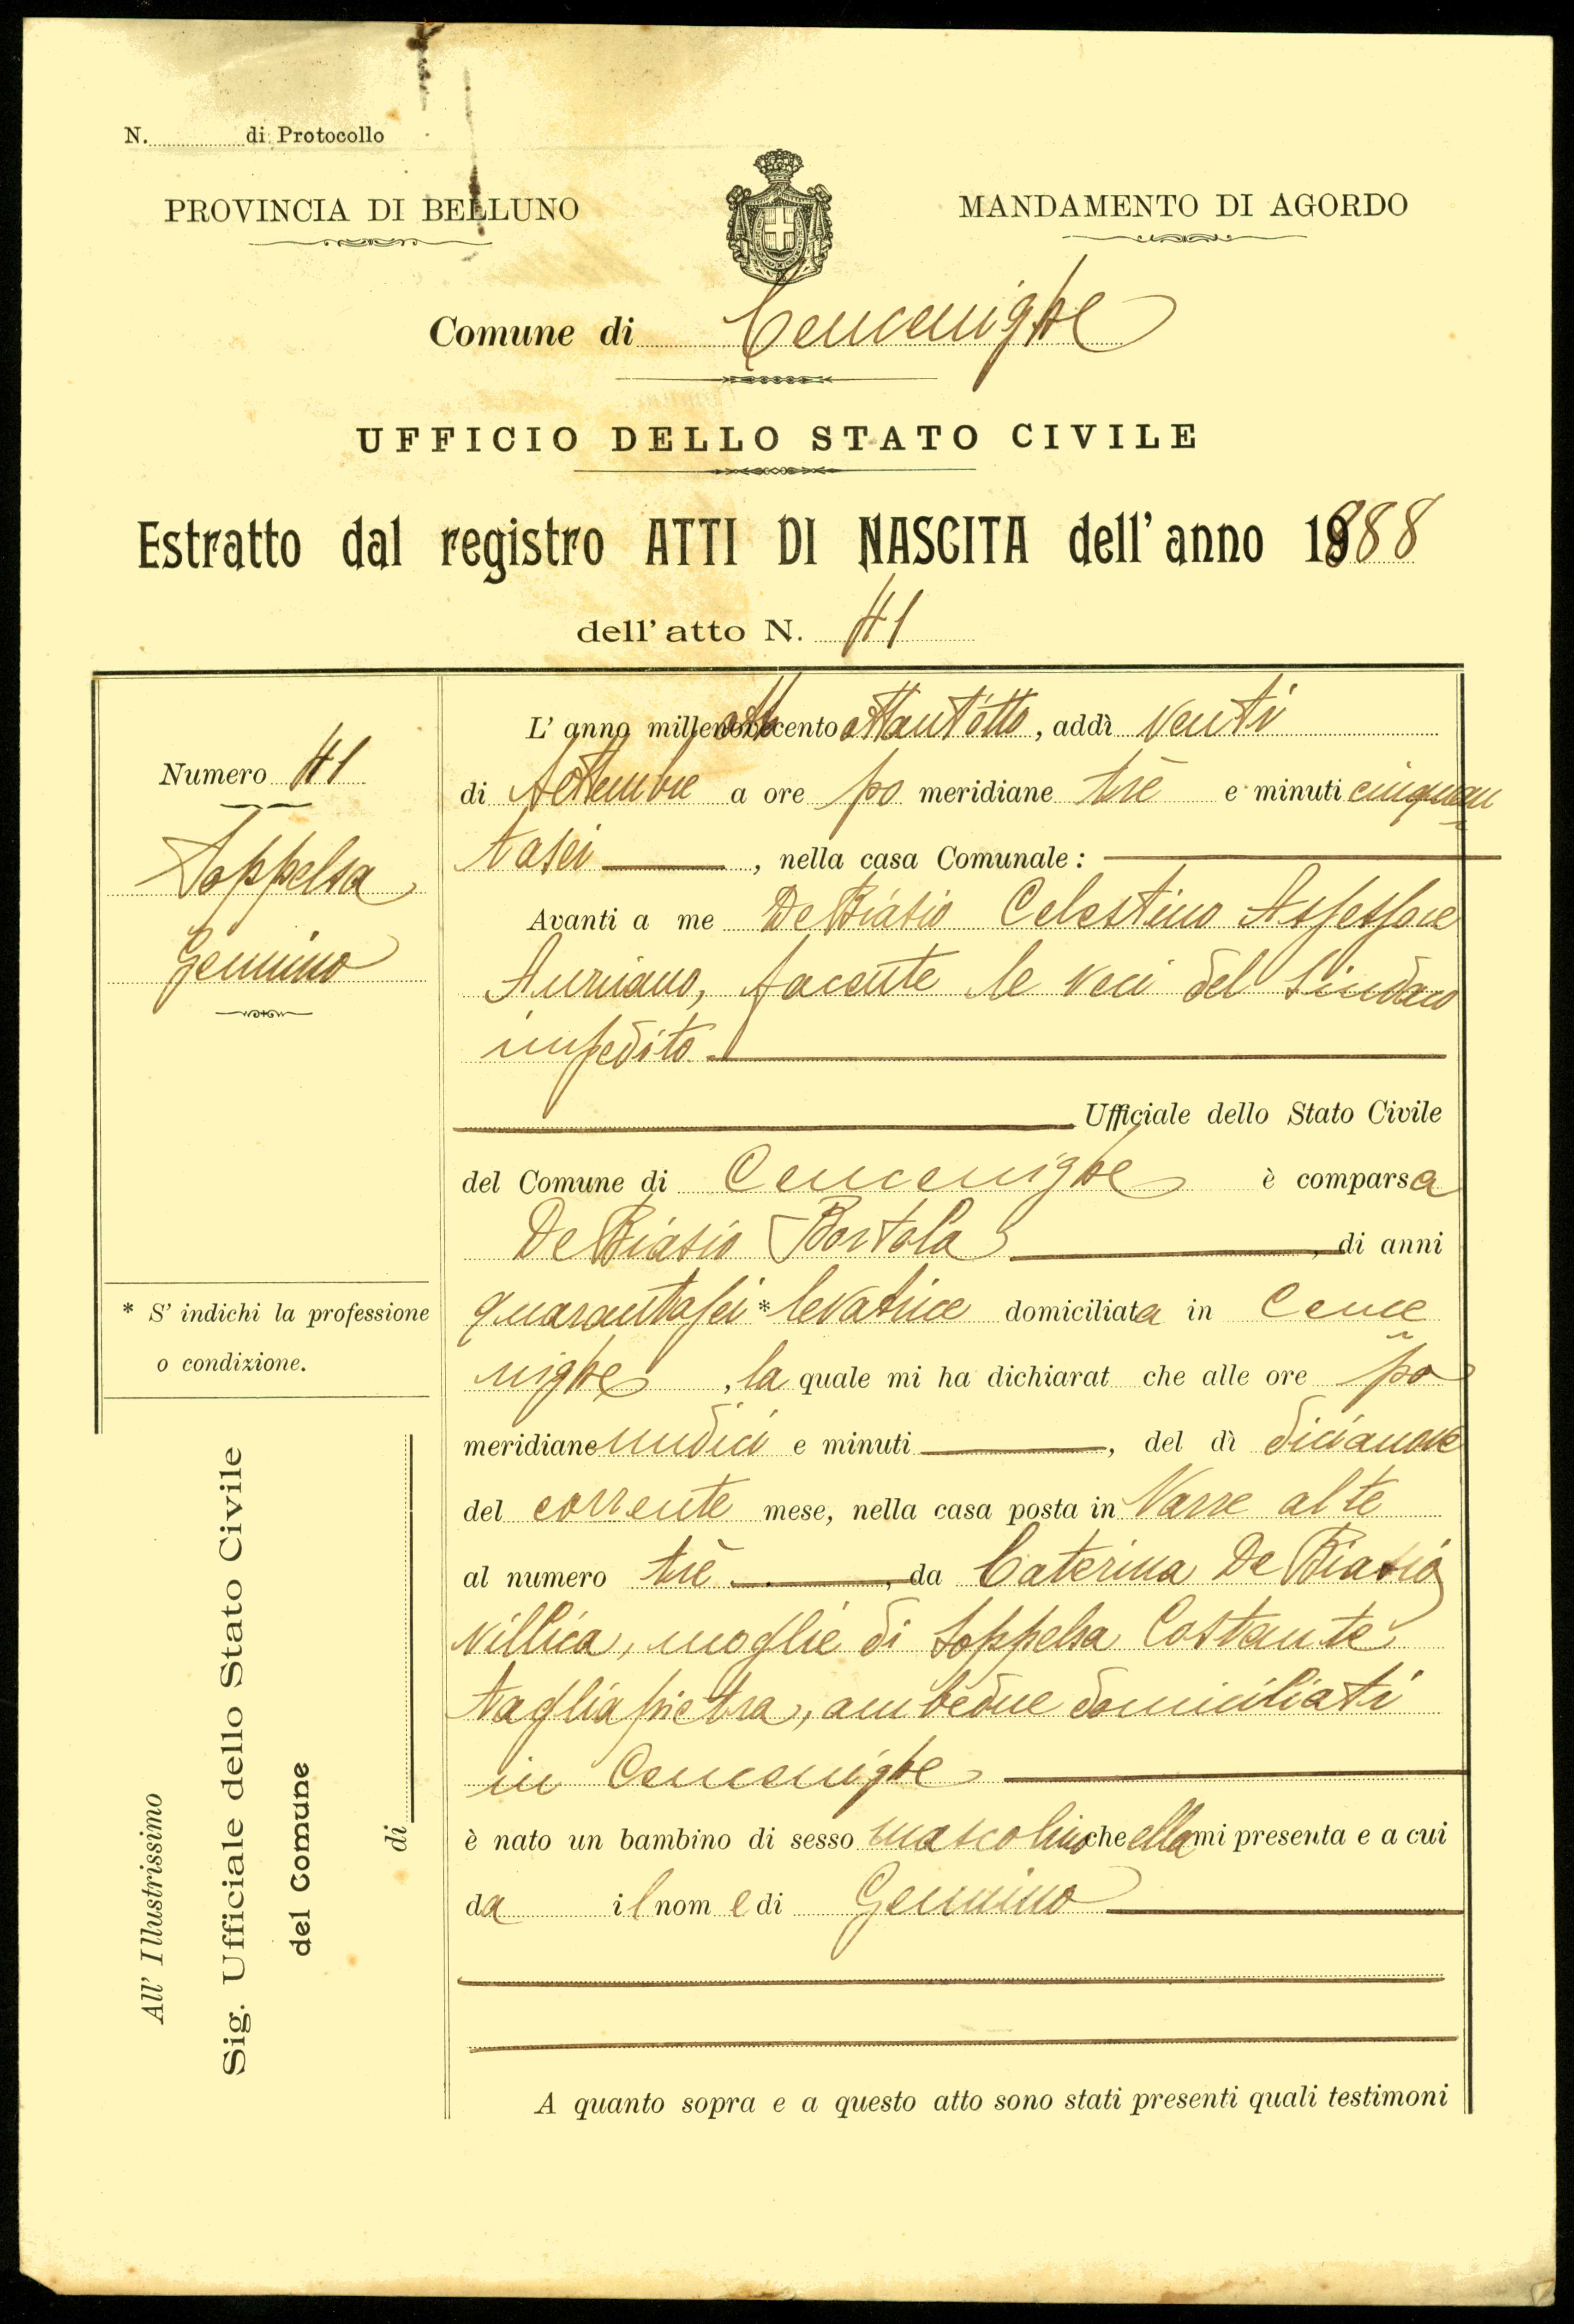 N. di Protocollo
PROVINCIA DI BELLUNO
MANDAMENTO DI AGORDO
Comune di Cencenighe
UFFICIO DELLO STATO CIVILE
Estratto dal registro ATTI DI NASCITA dell'anno 1888
dell'atto N. 41
Numero 41
Soppelsa
Gemino
* S' indichi la professione
o condizione.
All' Illustrissimo
Sig. Ufficiale dello Stato Civile
del Comune
di
L' anno milleottocento ottantotto, addì venti
di Settembre a ore po meridiane trè e minuti cinquan
tasei, nella casa Comunale:
Avanti a me De Biasio Celestino Assessore
Anziano, facente le veci del Sindaco
impedito
Ufficiale dello Stato Civile
del Comune di Cencenighe è comparsa
De Biasio Bortola, di anni
quarantasei * levatrice domiciliata in Cence
nighe, la quale mi ha dichiarat che alle ore po
meridiane undici e minuti, del dì dicianove
del corrente mese, nella casa posta in Varre alte
al numero trè, da Caterina De Biasio
villica, moglie di Soppelsa Costante
tagliapietra, ambedue domiciliati
in Cencenighe
è nato un bambino di sesso mascolino che ella mi presenta e a cui
da il nome di Gemino
A quanto sopra e a questo atto sono stati presenti quali testimoni